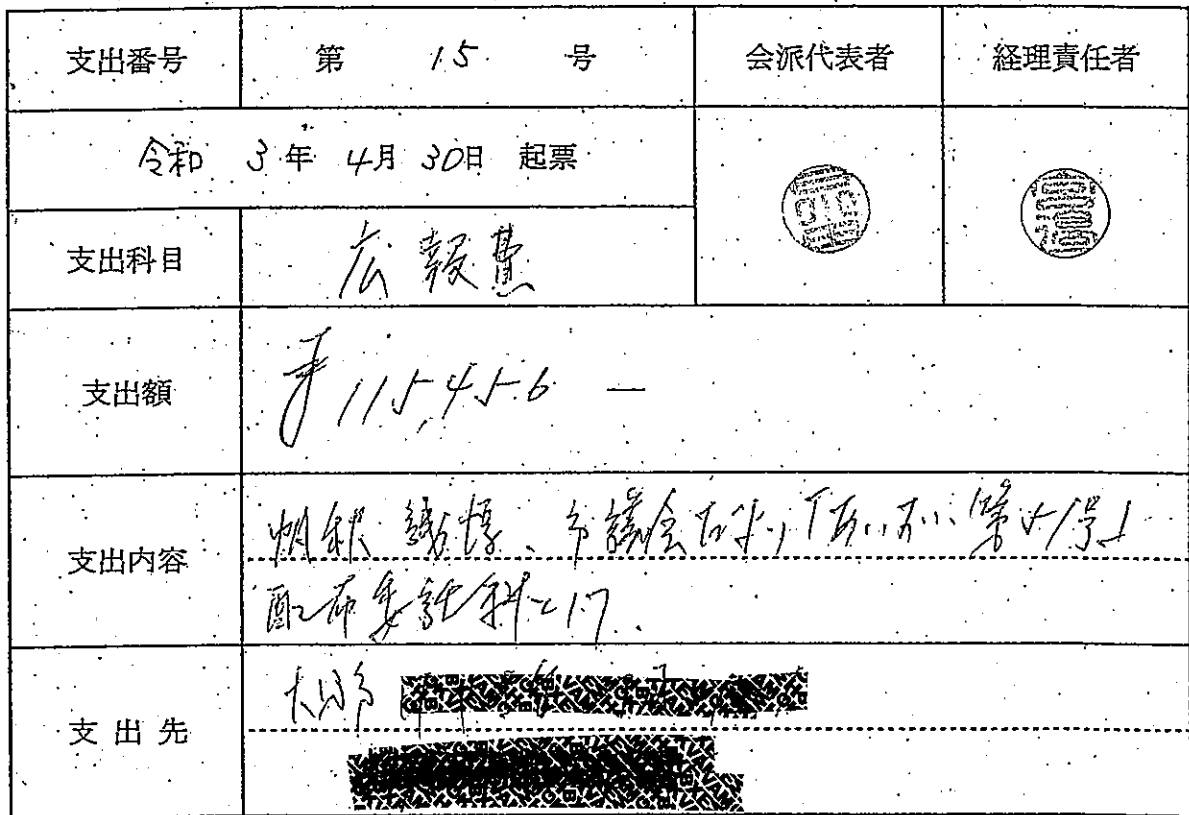 支出番号 第 15 号 会派代表者 経理責任者
令和 3年 4月 30日 起票
支出科目 広報費
支出額 ¥115,456 —
支出内容 市議会だより「 第 号」
配布委託料として
支出先 大